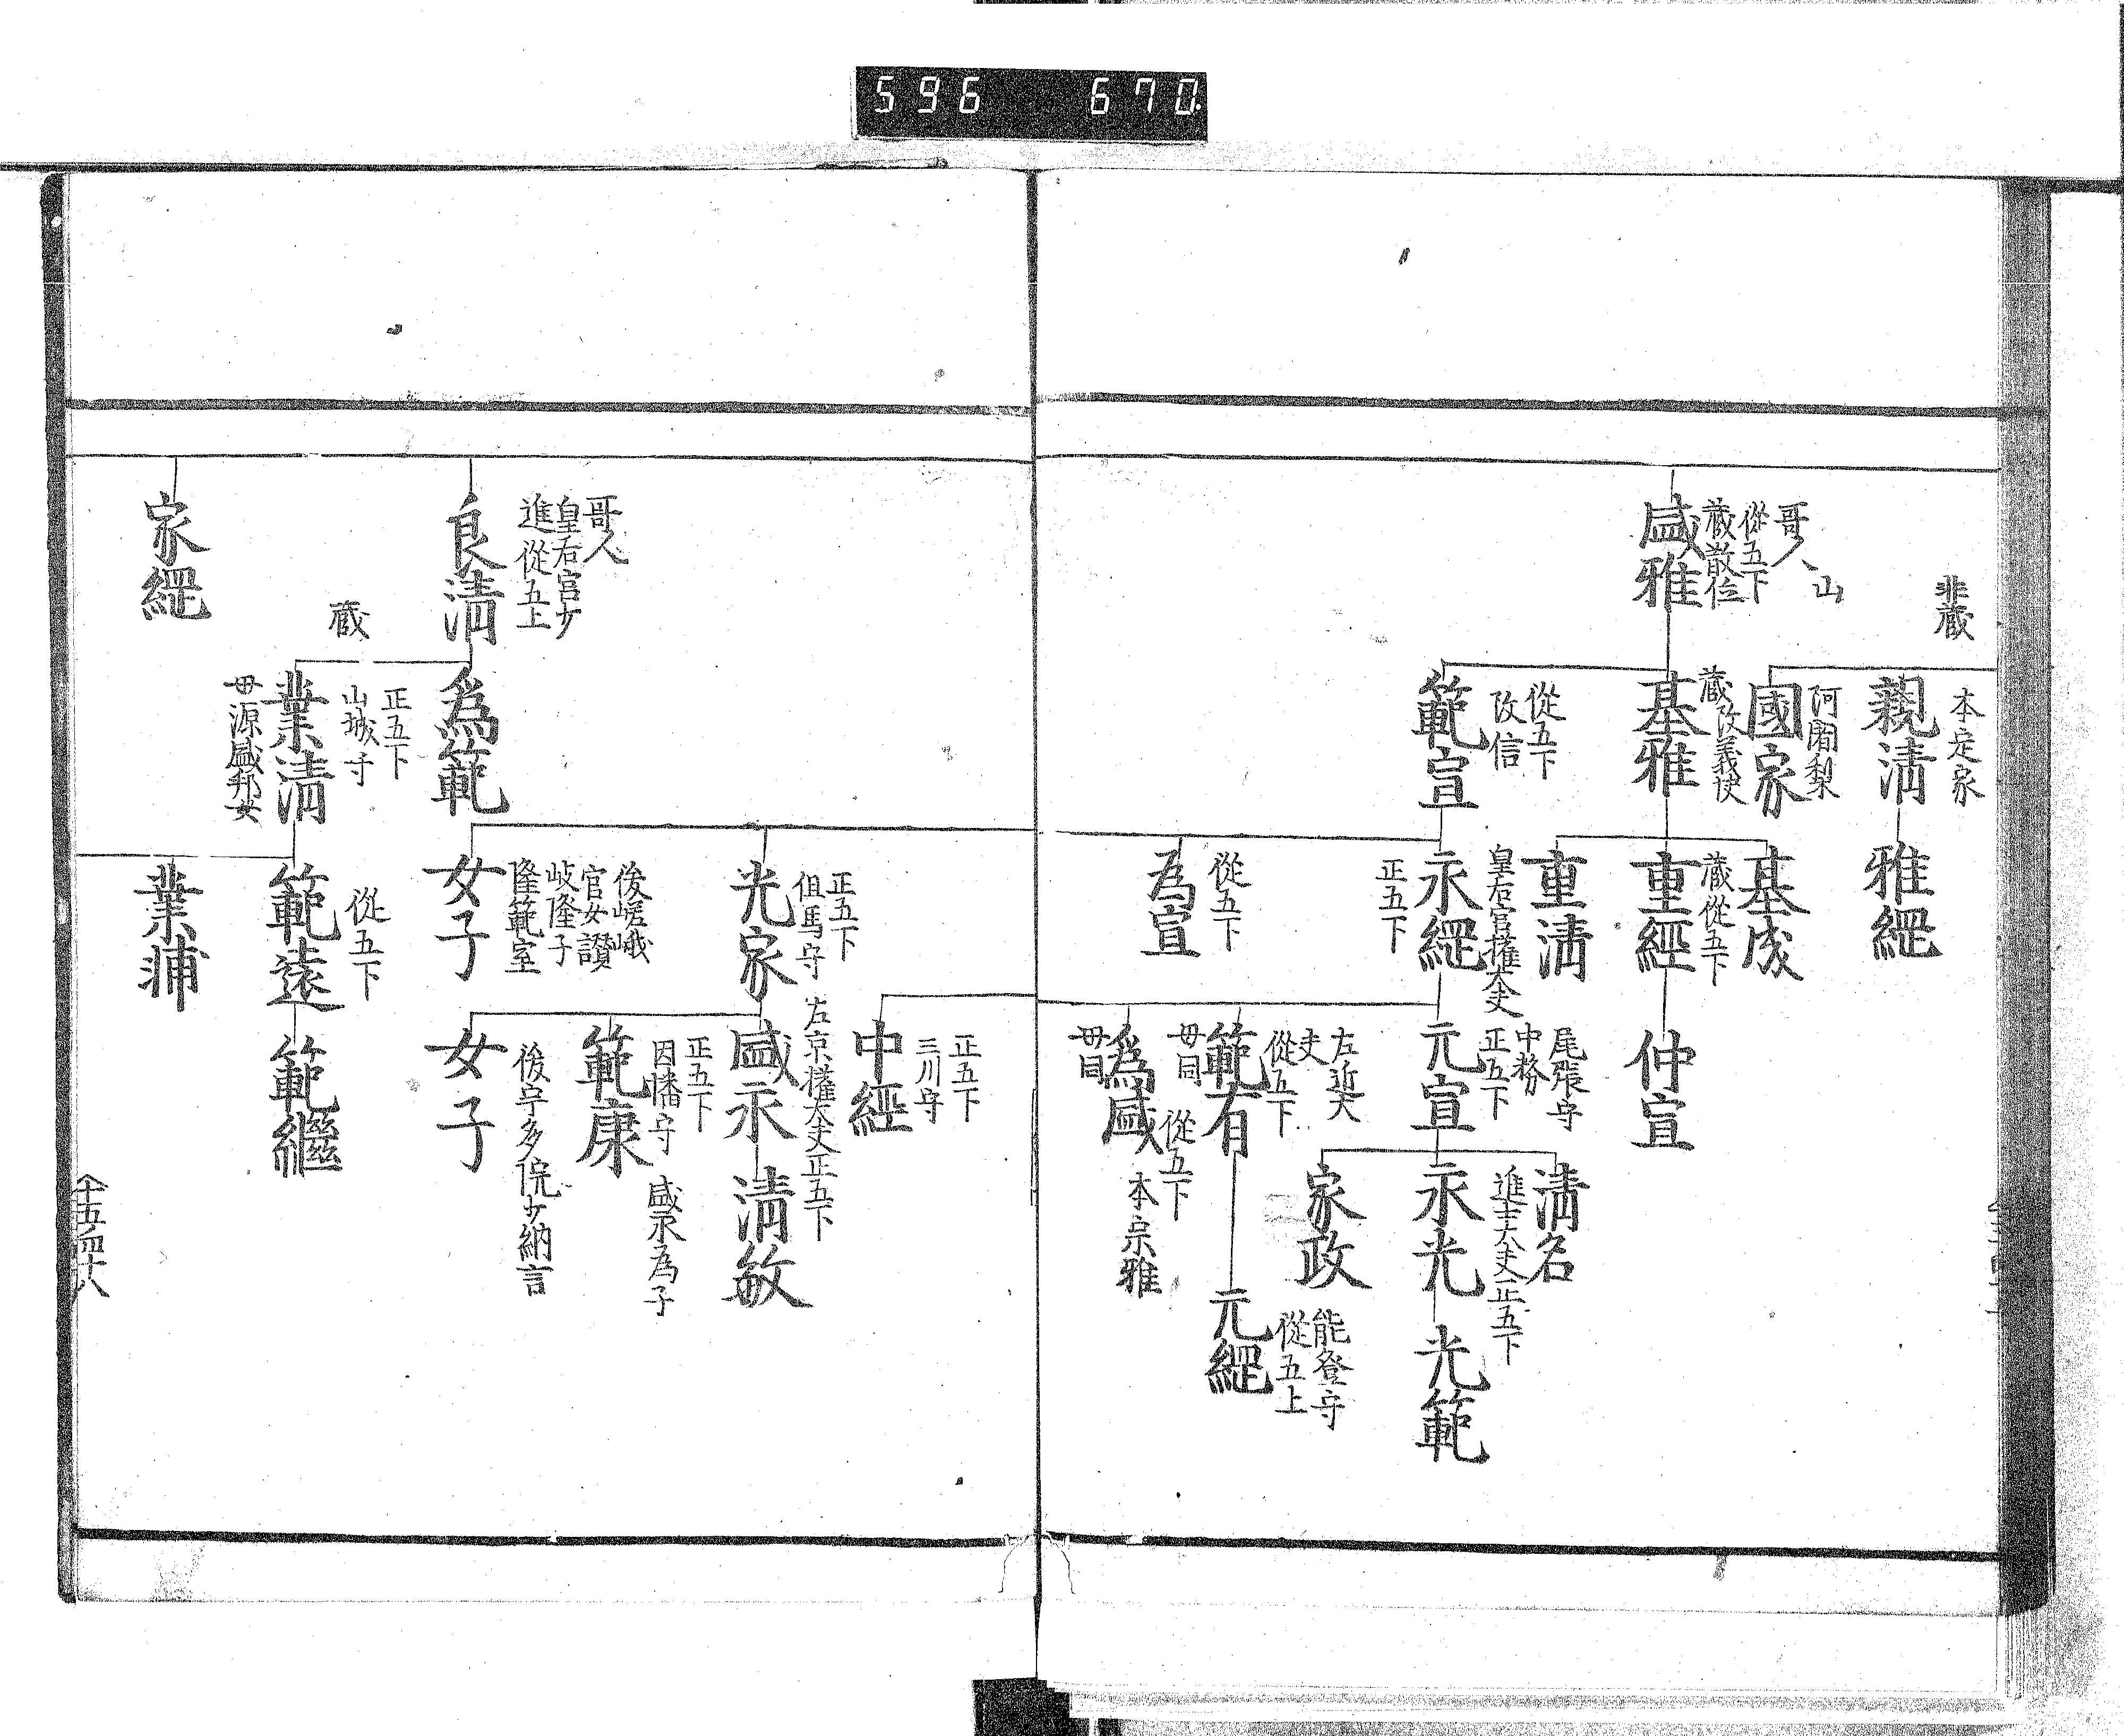 596 670.
非蔵
本定家
親清
雅經
阿闍梨
國家
哥人 山
從五下
蔵散位
盛雅
蔵改義
基雅
基成
蔵從五下
重經
重清
仲宣
從五下
改信
範宣
皇右宮權大夫
永經
正五下
尾張守
中務
正五下
元宣
清名
進士大夫正五下
永光
光範
家政
從五下
為宣
左近大
夫
從五下
範有
母同
能登守
從五上
元經
從五下
為盛
母同
本宗雅
正五下
三川守
中經
正五下
但馬守
光家
左京權大夫正五下
盛永
清敏
正五下
因幡守
範康
盛永為子
後嵯峨
官女讃
岐隆子
隆範室
女子
後宇多院少納言
女子
哥人
皇右宮少
進 從五上
良清
為範
蔵
正五下
山城守
業清
母源盛邦女
從五下
範遠
範繼
家經
業浦
十五四十八